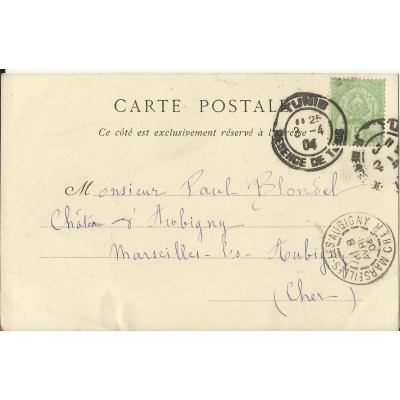 CARTE POSTALE
Ce côté est exclusivement réservé à l'adresse
TUNIS
11 25
3 -4
04
RÉGENCE DE TUNIS
Monsieur Paul Blondel
Château d'Aubigny
Marseilles-les-Aubigny
(Cher)
MARSEILLES-LES-AUBIGNY CHER